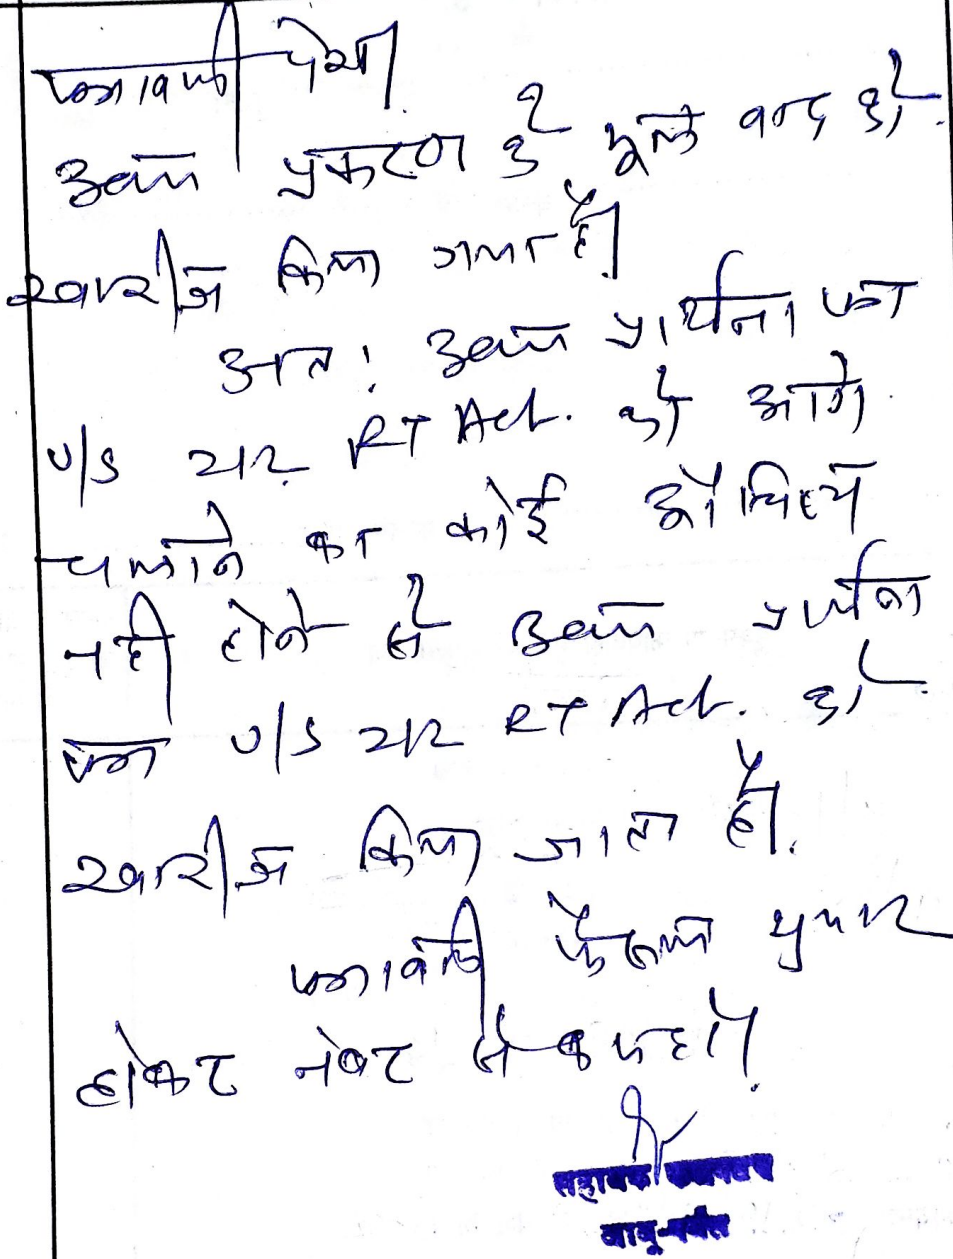 पत्रावली पेश।
उक्त प्रकरण में मूल वाद को
खारीज किया गया है।
अतः उक्त प्रार्थना पत्र
u/s 212 RT Act. को आगे
चलाने का कोई औचित्य
नही होने से उक्त प्रार्थना
पत्र u/s 212 RT Act. को
खारीज किया जाता है।
पत्रावली फैसल शुमार
होकर नंबर से कम हो।
सहायक कलक्टर
आबू-पर्वत